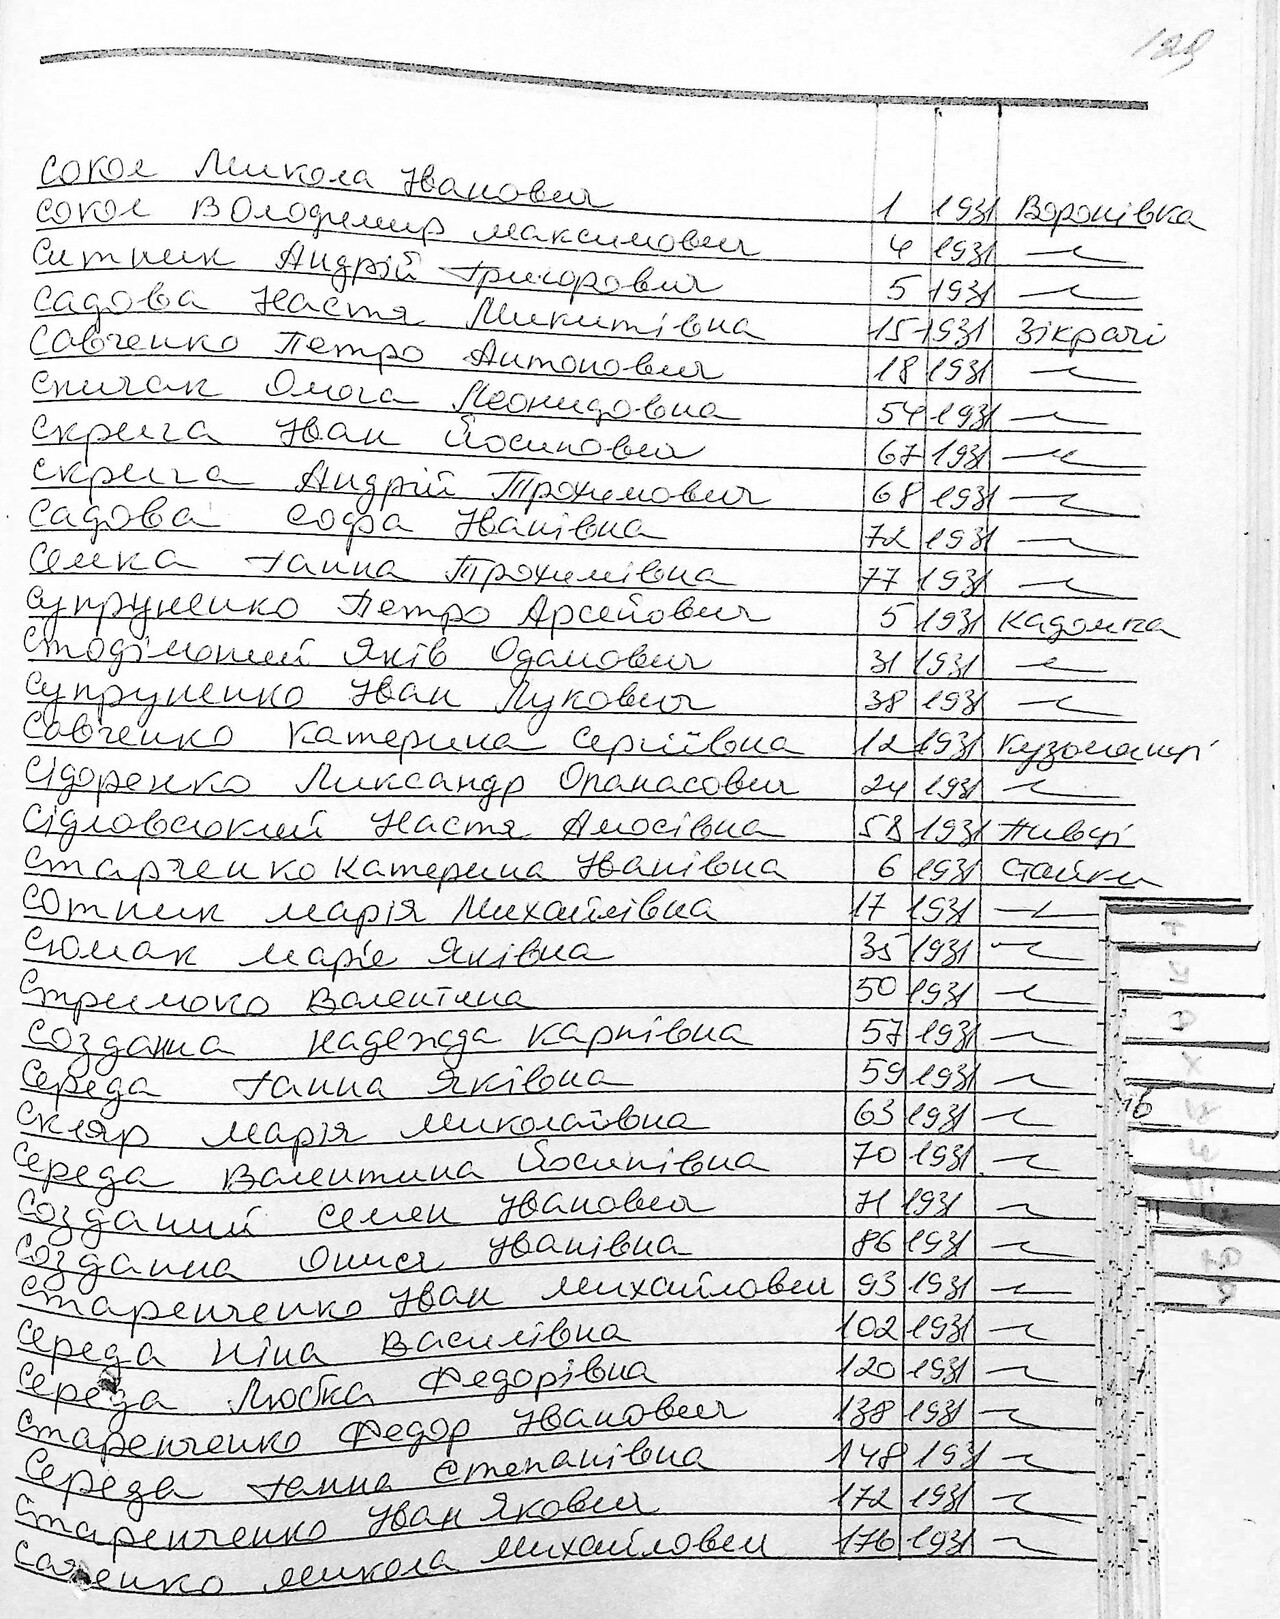 129
Сокол Микола Іванович 1 1931 Воронівка
Сокол Володимир Максимович 4 1931 —〃—
Ситник Андрій Григорович 5 1931 —〃—
Садова Настя Микитівна 15 1931 Зікрачі
Савченко Петро Антонович 18 1931 —〃—
Спичак Ольга Леонидовна 54 1931 —〃—
Скрига Іван Йосипович 67 1931 —〃—
Скрига Андрій Трохимович 68 1931 —〃—
Садова Софа Іванівна 72 1931 —〃—
Семка Ганна Трохимівна 77 1931 —〃—
Супруненко Петро Арсейович 5 1931 Кадомка
Стодільний Яків Одамович 31 1931 —〃—
Супруненко Іван Лукович 38 1931 —〃—
Савченко Катерина Сергіївна 12 1931
Сідоренко Ликсандр Опанасович 24 1931 —〃—
Сідловський Настя Амосівна 58 1931
Старченко Катерина Іванівна 6 1931 Стайки
Сотник Марія Михайлівна 17 1931 —〃—
Сюмак Маріє Яківна 35 1931 —〃—
Стримоко Валентина 50 1931 —〃—
Создана Надежда Карпівна 57 1931 —〃—
Середа Ганна Яківна 59 1931 —〃—
Скляр Марія Миколаївна 63 1931 —〃—
Середа Валентина Йосипівна 70 1931 —〃—
Созданий Семен Іванович 71 1931 —〃—
Созданна Онися Іванівна 86 1931 —〃—
Старенченко Іван Михайлович 93 1931 —〃—
Середа Ніна Василівна 102 1931 —〃—
Середа Любка Федорівна 120 1931 —〃—
Старенченко Федор Іванович 138 1931 —〃—
Середа Ганна Степанівна 148 1931 —〃—
Старенченко Іван Якович 172 1931 —〃—
Микола Михайлович 176 1931 —〃—